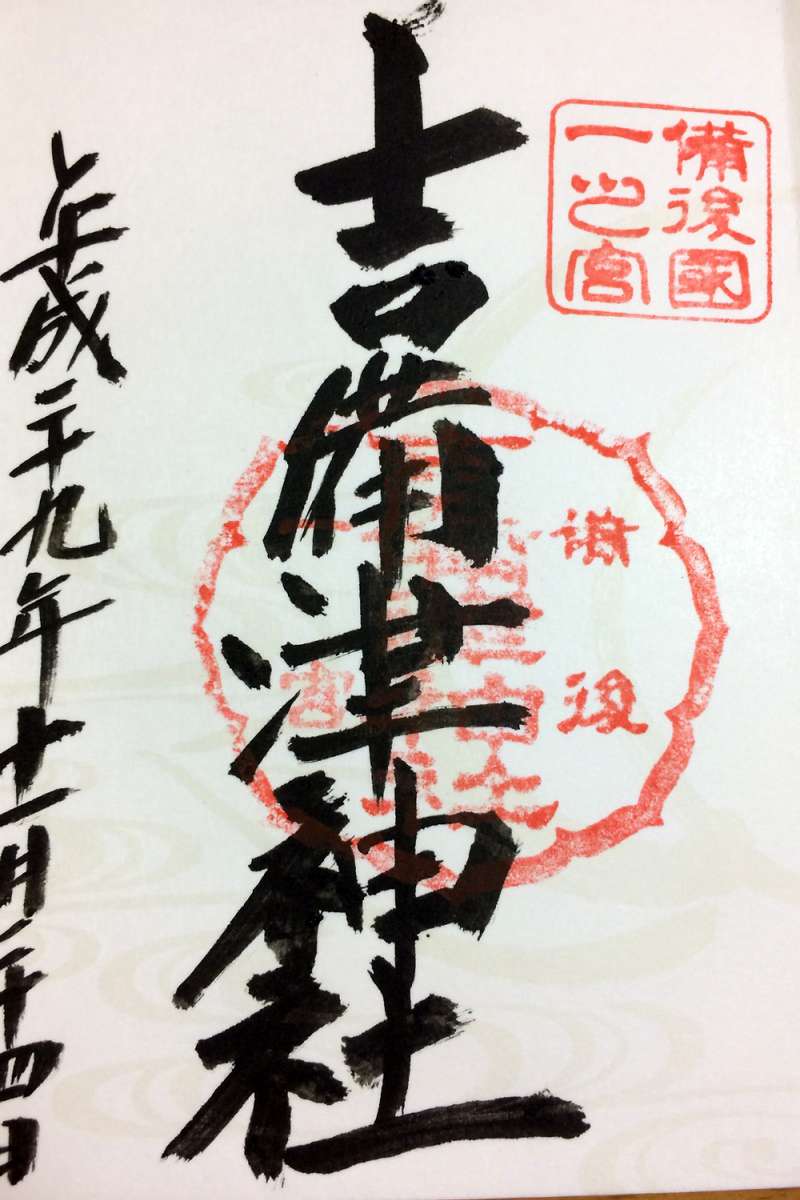 備後國
一之宮
備後
吉備津神社
平成二十九年十一月二十四日